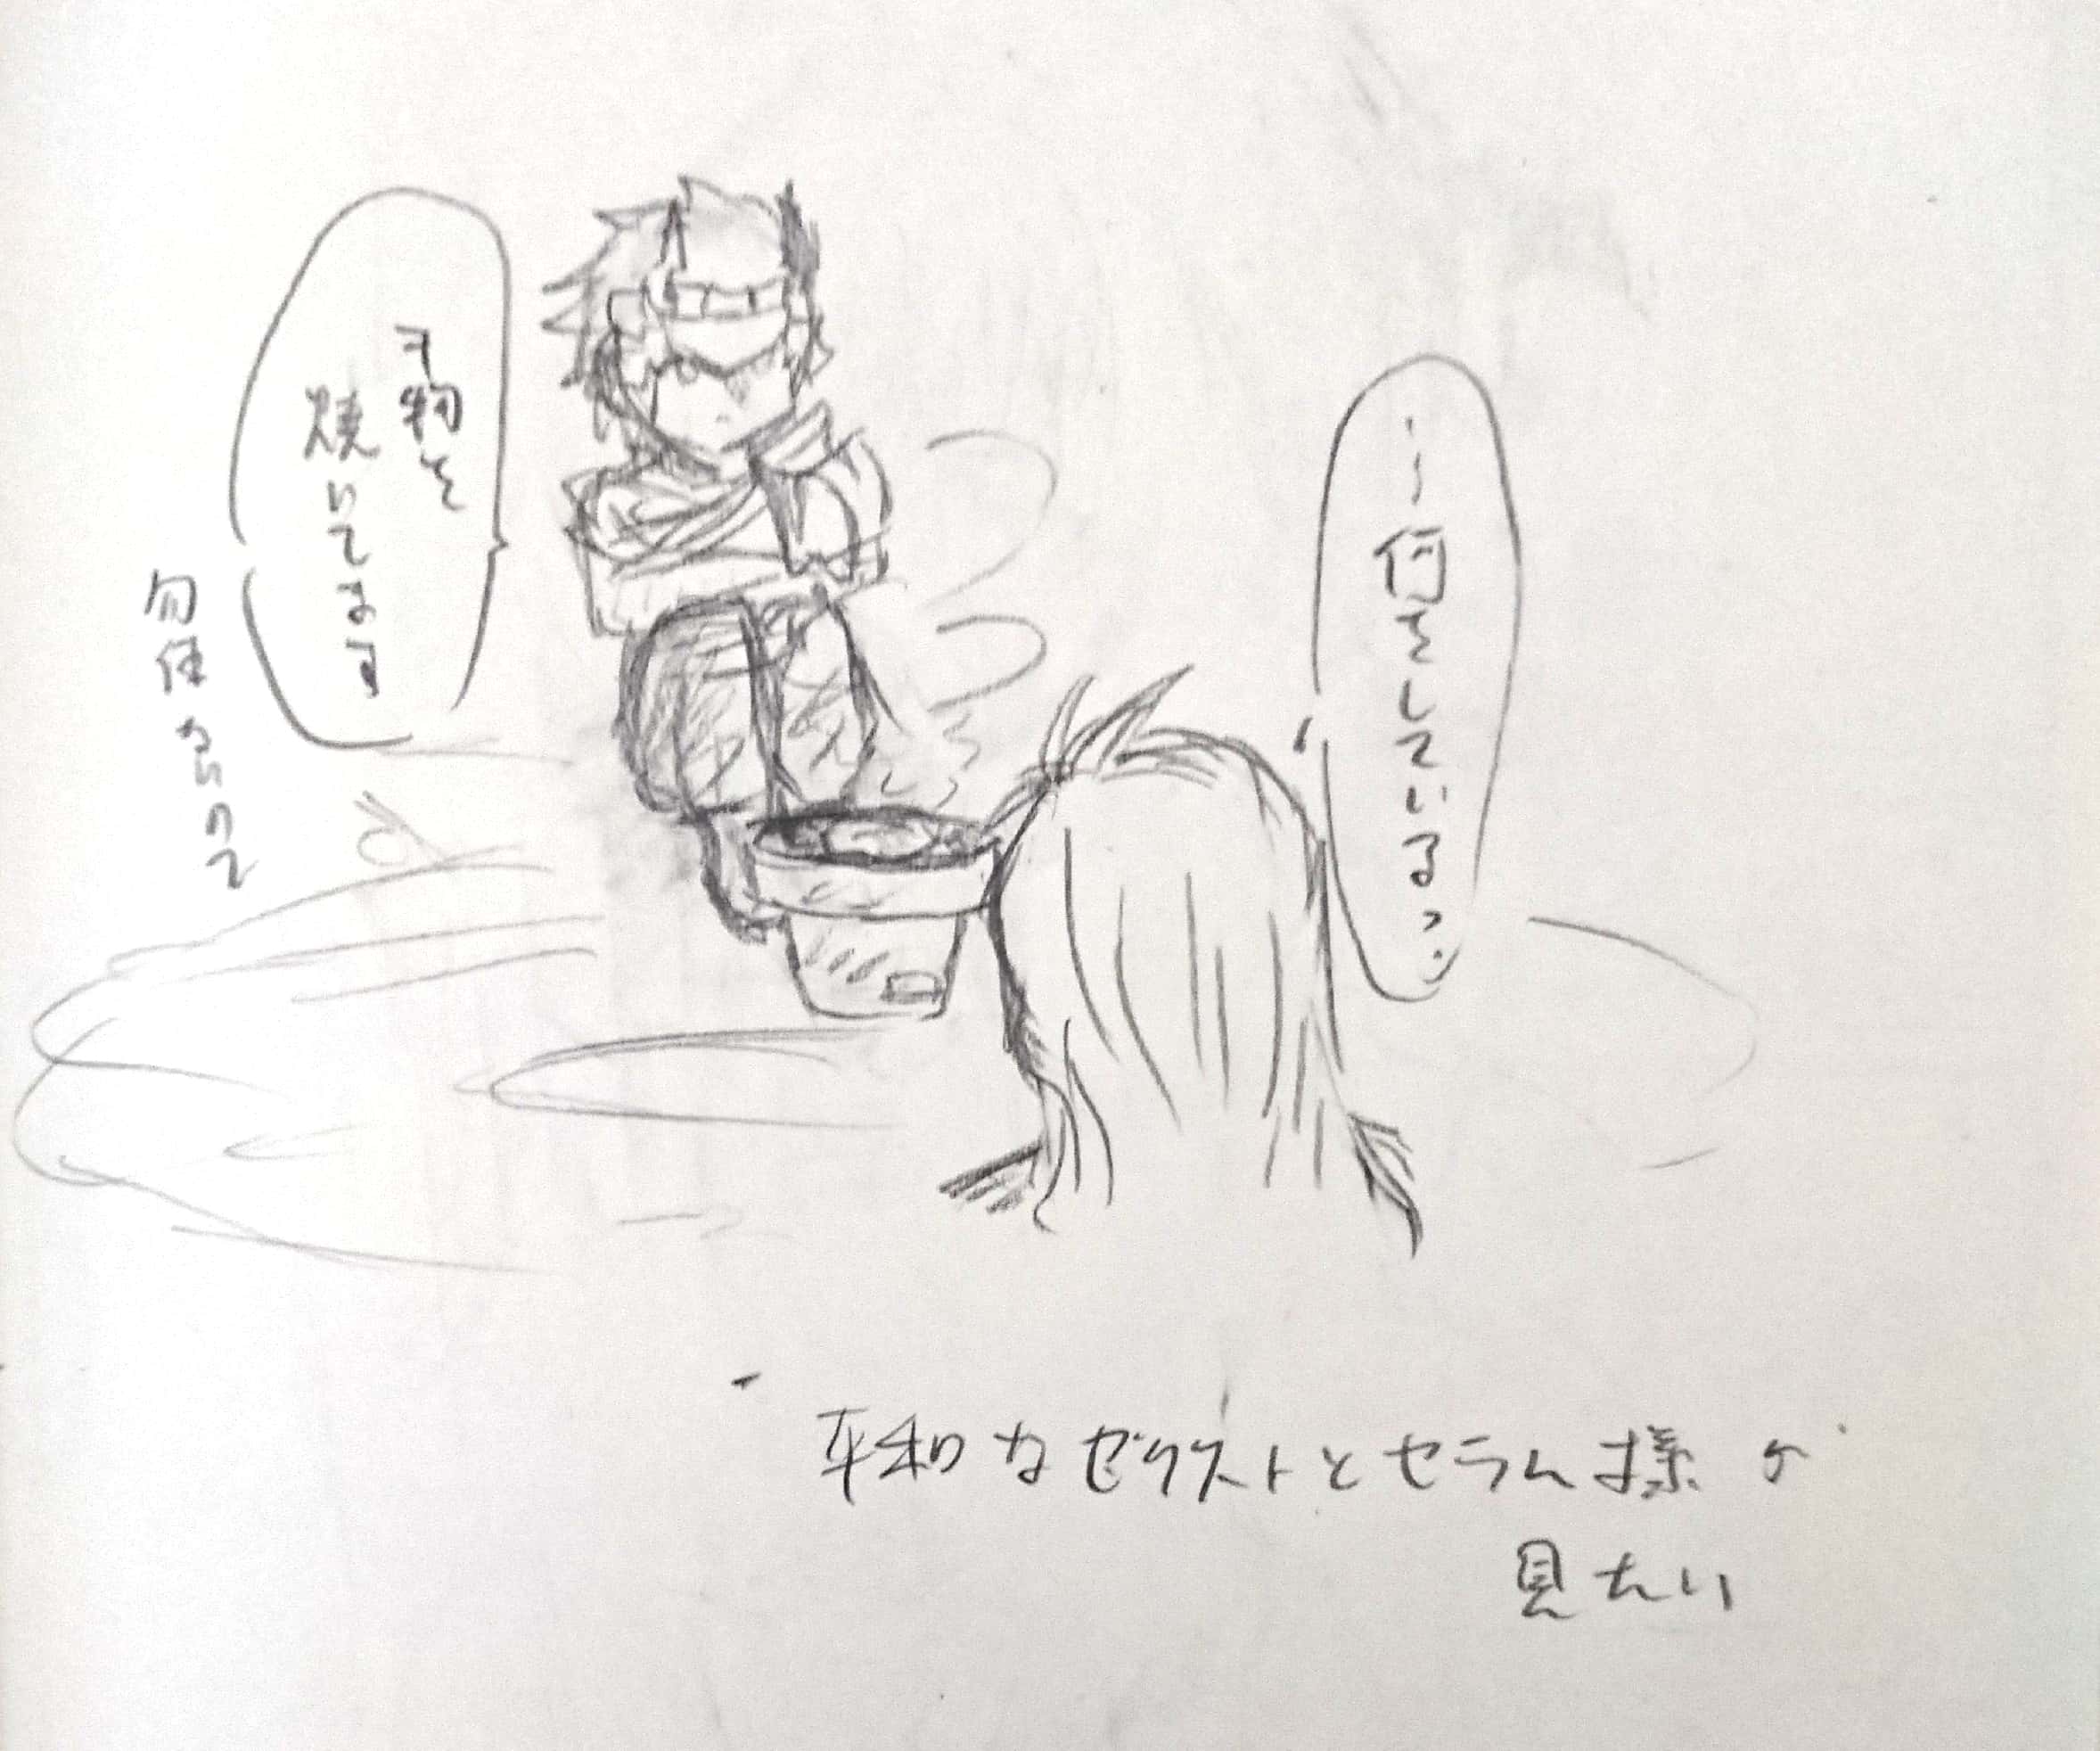 …何をしている?
干物を
焼いてます
平和なゼクストとセラム様が
見たい